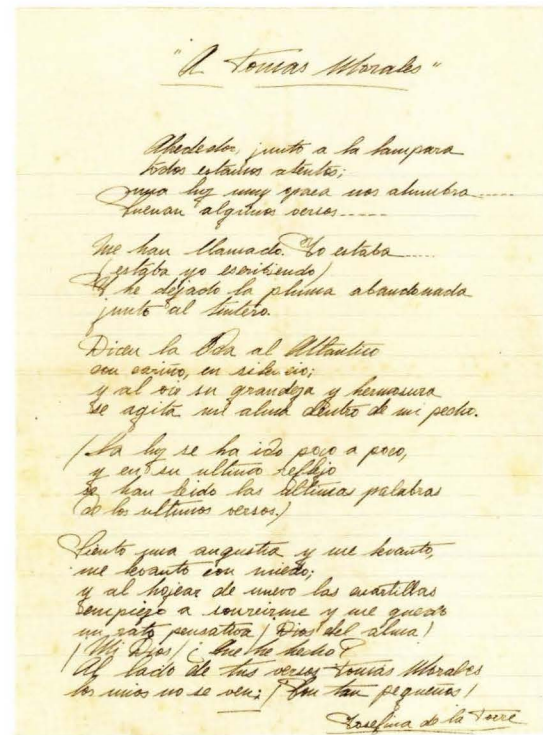 "A Tomas Morales"
Alrededor, junto a la lampara
todos estamos atentos;
una luz muy opaca nos alumbra.....
Suenan algunos versos.....
Me han llamado. Yo estaba.....
(estaba yo escribiendo)
Y he dejado la pluma abandonada
junto al tintero.
Dicen la Oda al Atlantico
con cariño, en silencio;
y al oir su grandeza y hermosura
se agita mi alma dentro de mi pecho.
(La luz se ha ido poco a poco,
y en su ultimo reflejo
se han leido las últimas palabras
de los ultimos versos.)
Siento una angustia y me levanto,
me levanto con miedo;
y al hojear de nuevo las cuartillas
empiezo a sonreirme y me quedo
un rato pensativa ¡Dios del alma!
¡Mi Dios! ¿Que he hecho?
Al lado de tus versos Tomás Morales
los mios no se ven; ¡Son tan pequeños!
Josefina de la Torre